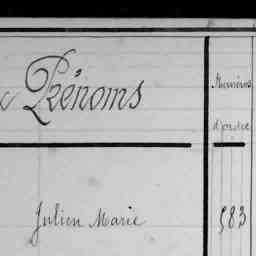 Prénoms
Numéros
d'ordre
Julien Marie
583